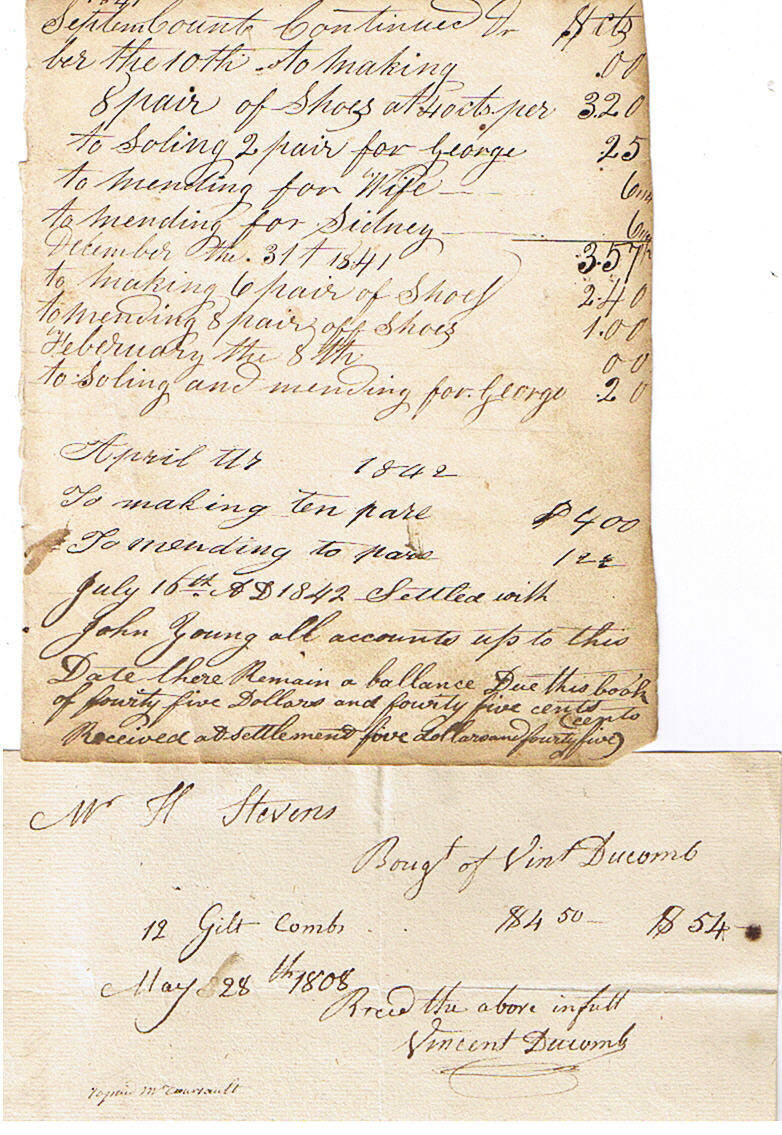 1841
Septem Count Continued Dr $ cts
ber the 10th to making .00
8 pair of Shoes at 40 cts. per 3.20
to Soling 2 pair for George .25
to mending for Wife 6
to mending for Sidney 6
December the. 31t 1841 3.57
to making 6 pair of Shoes 2.40
to mending 8 pair off Shoes 1.00
Feberuary the 8th 00
to Soling and mending for George .20
April 1842
To making ten pare $4 00
To mending to pare
July 16th AD 1842 Settled with
John Young all accounts up to this
Date there Remain a ballance Due this book
of fourty five Dollars and fourty five cents
Received at settlement five dollars and fourty five cents
Mr H Stevens
Bougt of Vint Ducomb
12 Gilt Combs . . $4 50 — $ 54 —
May 28th 1808
Recd the above in full
Vincent Ducomb